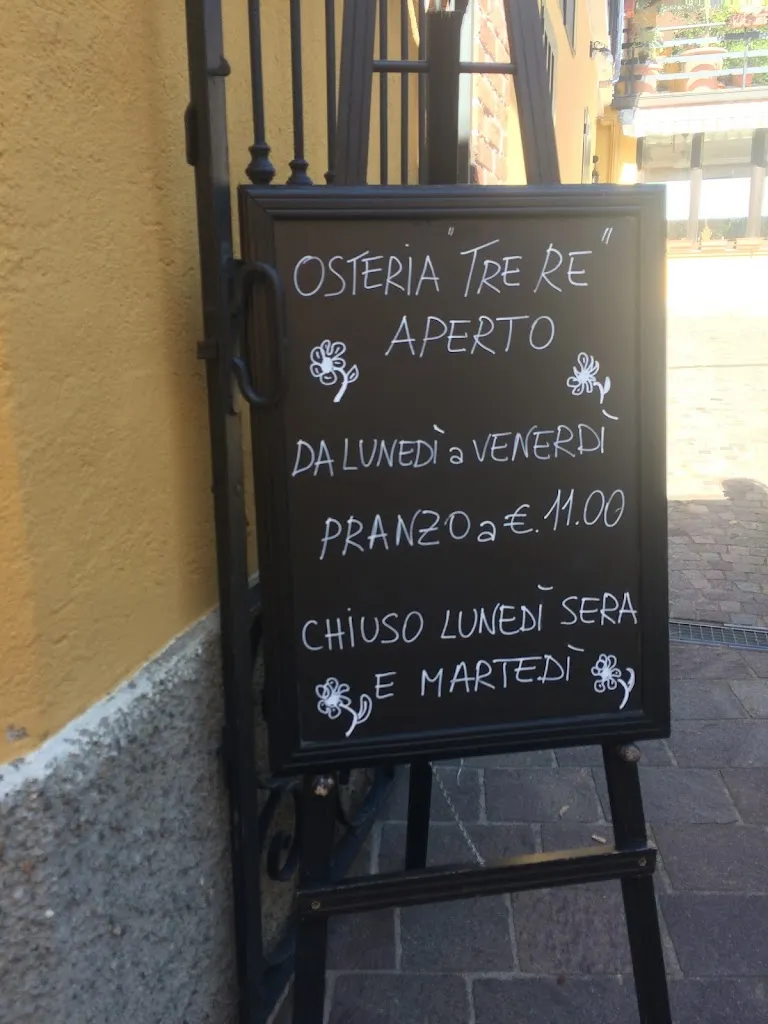 OSTERIA "TRE RE"
APERTO
DA LUNEDÌ a VENERDÌ
PRANZO a €.11.00
CHIUSO LUNEDÌ SERA
E MARTEDÌ